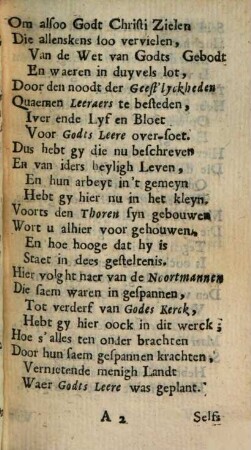 Om alsoo Godt Christi Zielen
Die allenskens soo vervielen,
Van de Wet van Godts Gebodt
En waeren in duyvels lot,
Door den noodt der Geest'lyckheden
Quaemen Leeraers te besteden,
Iver ende Lyf en Bloet
Voor Godts Leere over-soet.
Dus hebt gy die nu beschreven
En van iders heyligh Leven,
En hun arbeyt in't gemeyn
Hebt gy hier nu in het kleyn.
Voorts den Thoren syn gebouwen
Wort u alhier voor gehouwen.
En hoe hooge dat hy is
Staet in dees gesteltenis.
Hier volght naer van de Noortmannen
Die saem waren in gespannen,
Tot verderf van Godes Kerck,
Hebt gy hier oock in dit werck;
Hoe s'alles ten onder brachten
Door hun saem gespannen krachten,
Vernietende menigh Landt
Waer Godts Leere was geplant.
A 2 Selfs